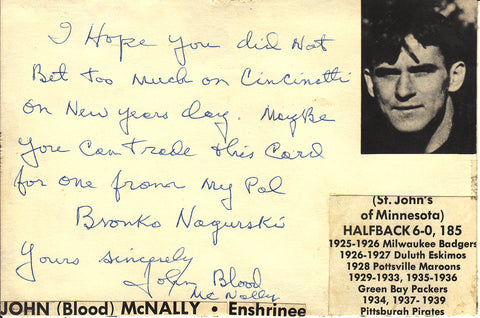 I Hope you did Not
Bet too much on Cincinatti
on New years day. MayBe
you can trade this card
for one from My Pal
Bronko Nagurski
Yours sincerely
John Blood
Mc Nally
(St. John's
of Minnesota)
HALFBACK 6-0, 185
1925-1926 Milwaukee Badgers
1926-1927 Duluth Eskimos
1928 Pottsville Maroons
1929-1933, 1935-1936
Green Bay Packers
1934, 1937-1939
Pittsburah Pirates
JOHN (Blood) McNALLY • Enshrinee